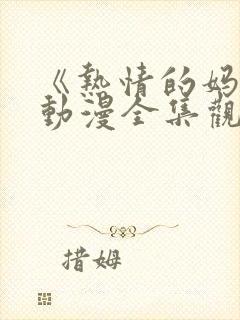 《熱情的妈
動漫全集觀
措姆